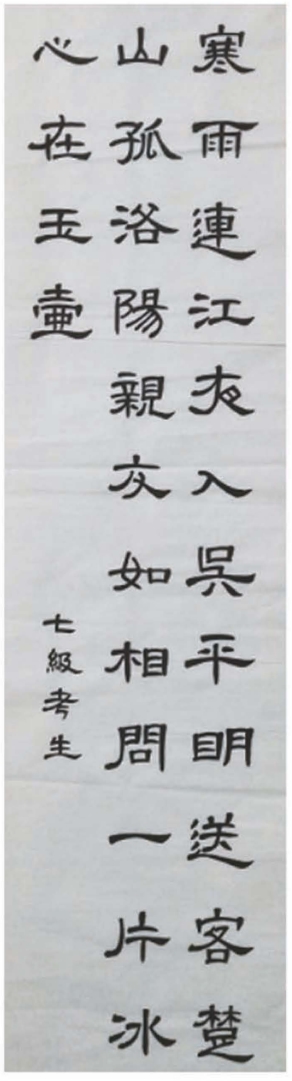 寒雨連江夜入吳平明送客楚
山孤洛陽親友如相問一片冰
心在玉壺
七級考生